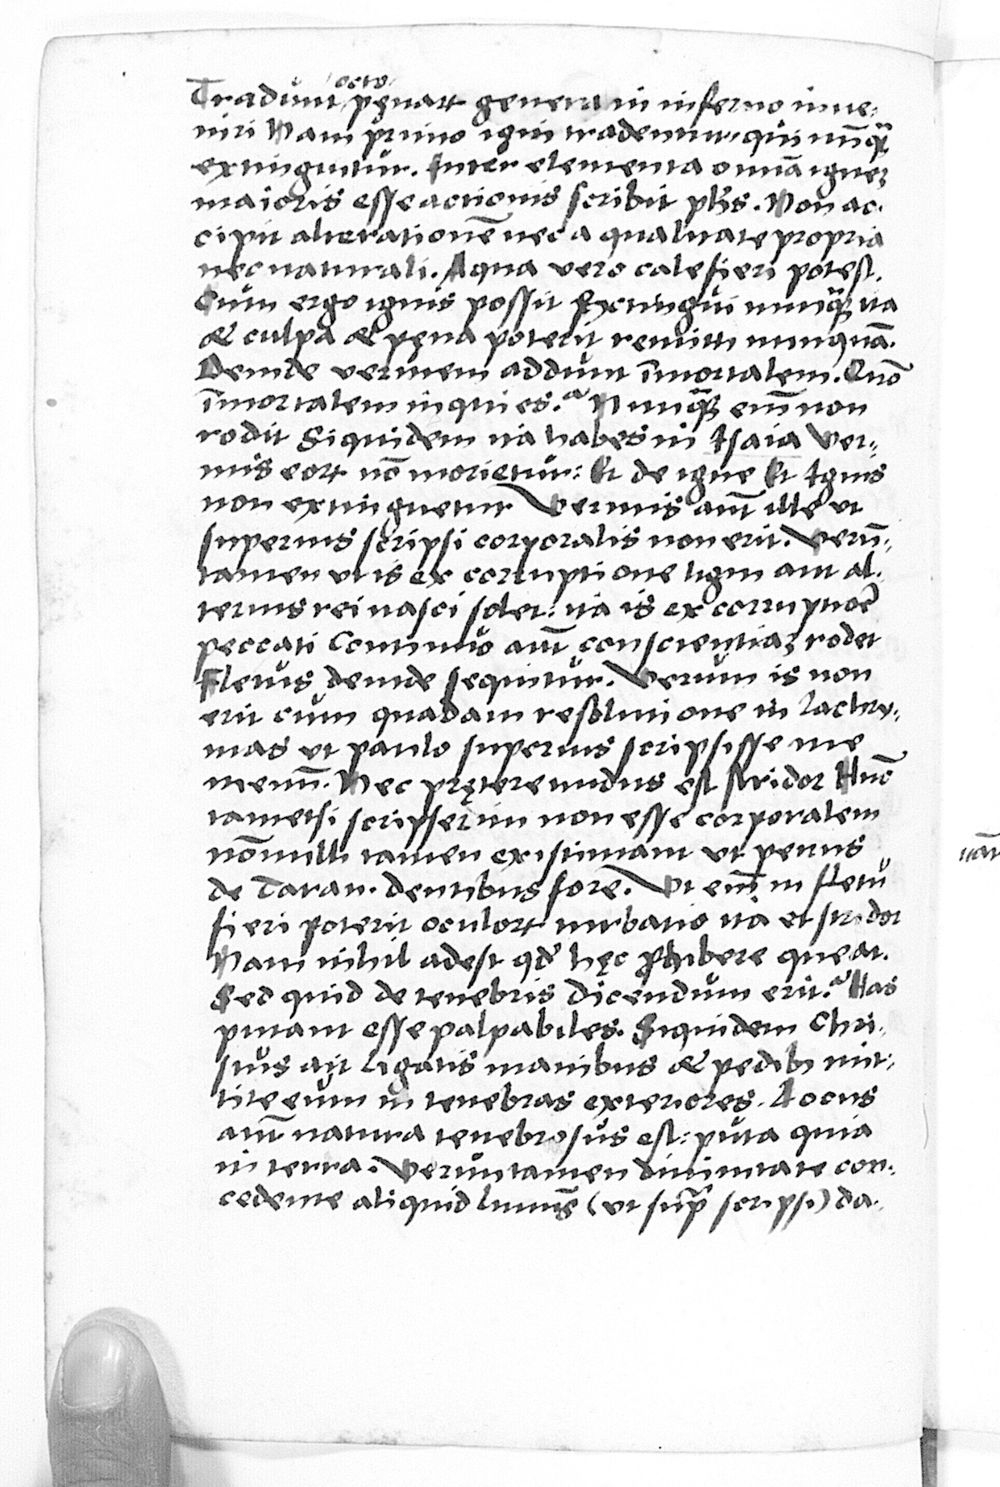 octo
Tradunt pęnarꝝ genera in inferno inue-
niri Nam primo igni tradentur, qui nūꝗ̃
extinguitur. Inter elementa omnia ignez
maioris esse actionis scribit phs. Non ac-
cipit alterationē nec a qualitate propria
nec naturali. Aqua vero calefieri potest.
Cum ergo ignis possit Extingui nunꝗ̃ ita
& culpa & pęna poterit remitti nunquā.
Deinde vermem addunt īmortalem. Quō
īmortalem inquies? Nunꝗ̃ enī non
rodit Siquidem ita habes in Isaia Ver-
mis eorꝝ nō morietur: Et de igne Et Ignis
non extinguetur Vermis aūt ille vt
superius scripsi corporalis non erit. Verū-
tamen vt is ex corruptione ligni aut al-
terius rei nasci solet: ita is ex corruptiōe
peccati Continuo aūt conscientiaz rodet
Fletus deinde sequitur. Verum is non
erit cum quadam resolutione in lachry-
mas vt paulo superius scripsisse me
memini. Nec prętereundus est stridor Hūc
tametsi scripserim non esse corporalem
nōnulli tamen existimant vt penus
de dentibus fore. Vt enī in fletu
fieri poterit oculorꝝ turbatio ita et stridor
Nam nihil adest qd' hęc ꝓhibere queat.
Sed quid de tenebris dicendum erit? Has
putant esse palpabiles. Siquidem Chri-
stus ait Ligatis manibus & pedibꝫ mit-
tite eum in tenebras exteriores. Locus
aūt natura tenebrosus est: puta quia
in terra. Veruntamen diuinitate con-
cedente aliquid luminis (vt sup̃ scripsi) da-